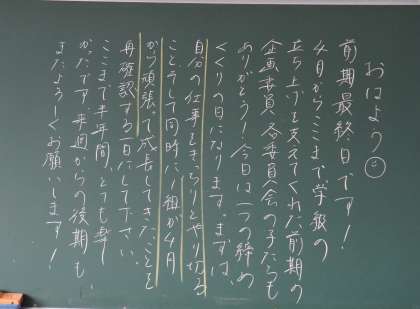 おはよう
前期最終日です!
4月からここまで学級の
立ち上げを支えてくれた前期の
企画委員、各委員会の子たちも
ありがとう!今日は一つの締め
くくりの日になります。まずは、
自分の仕事をきっちりとやり切る
こと。そして同時に1組が4月
から頑張って成長してきたことを
再確認する1日にして下さい。
ここまで半年間、とても楽し
かったです。来週からの後期も
またよろしくお願いします!